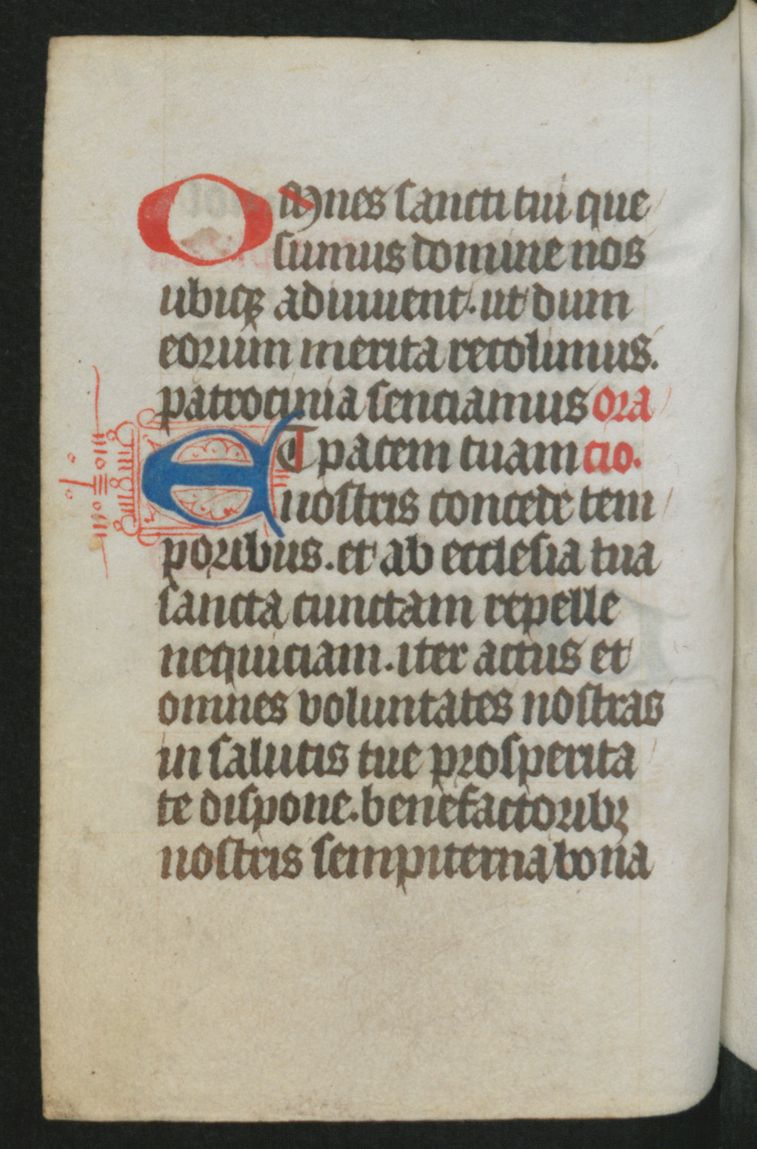 Omnes sancti tui que
sumus domine nos
ubiqꝫ adiuuent. ut dum
eorum merita recolimus.
patrocinia senciamus ora
ET pacem tuam cio.
nostris concede tem
poribus. et ab ecclesia tua
sancta cunctam repelle
nequiciam. iter actus et
omnes voluntates nostras
in salutis tue prosperita
te dispone. benefactoribꝫ
nostris sempiterna bona